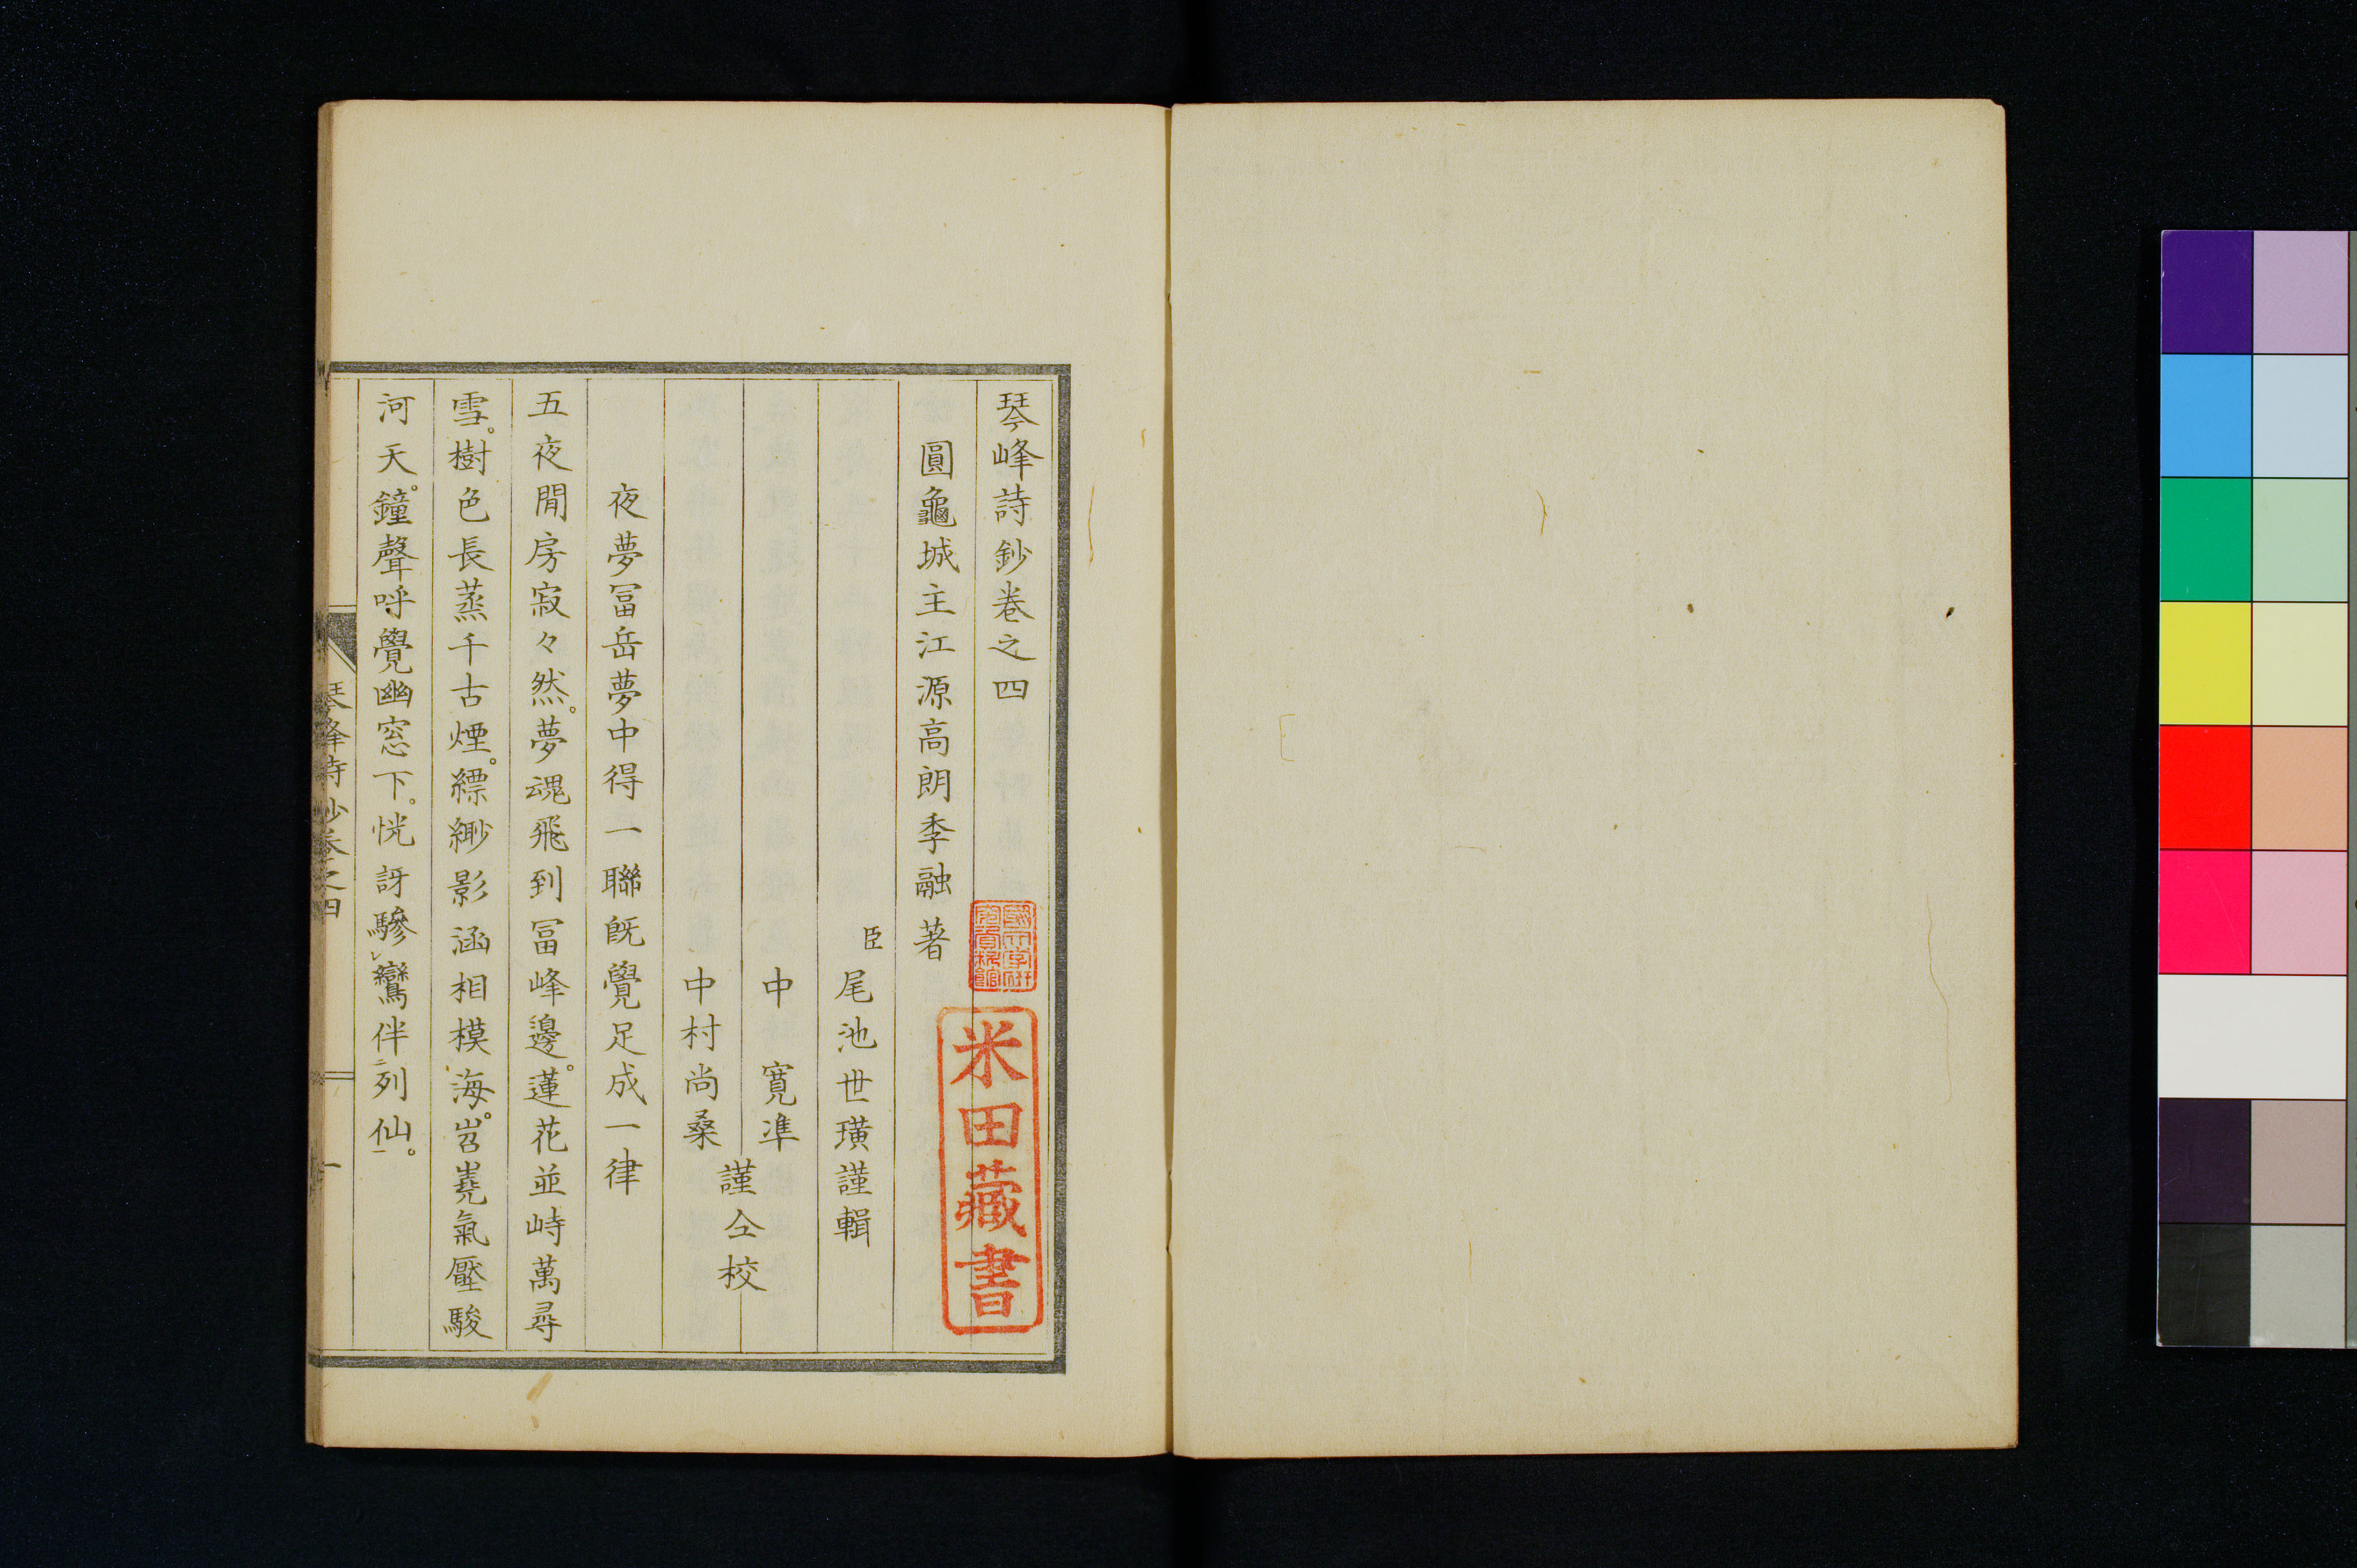 琴峰詩鈔卷之四
圓龜城主江源高朗季融著
臣尾池世璜謹輯
中寬準
中村尚桑
謹仝校
夜夢冨岳夢中得一聯既覺足成一律
五夜閒房寂々然。夢魂飛到冨峰邊。蓮花並峙萬尋
雪。樹色長蒸千古煙。縹緲影涵相模海。岧嶤氣壓駿
河天。鐘聲呼覺幽窓下。恍訝驂㆑鸞伴㆓列仙㆒。
琴峰詩鈔卷之四
一
米田藏書